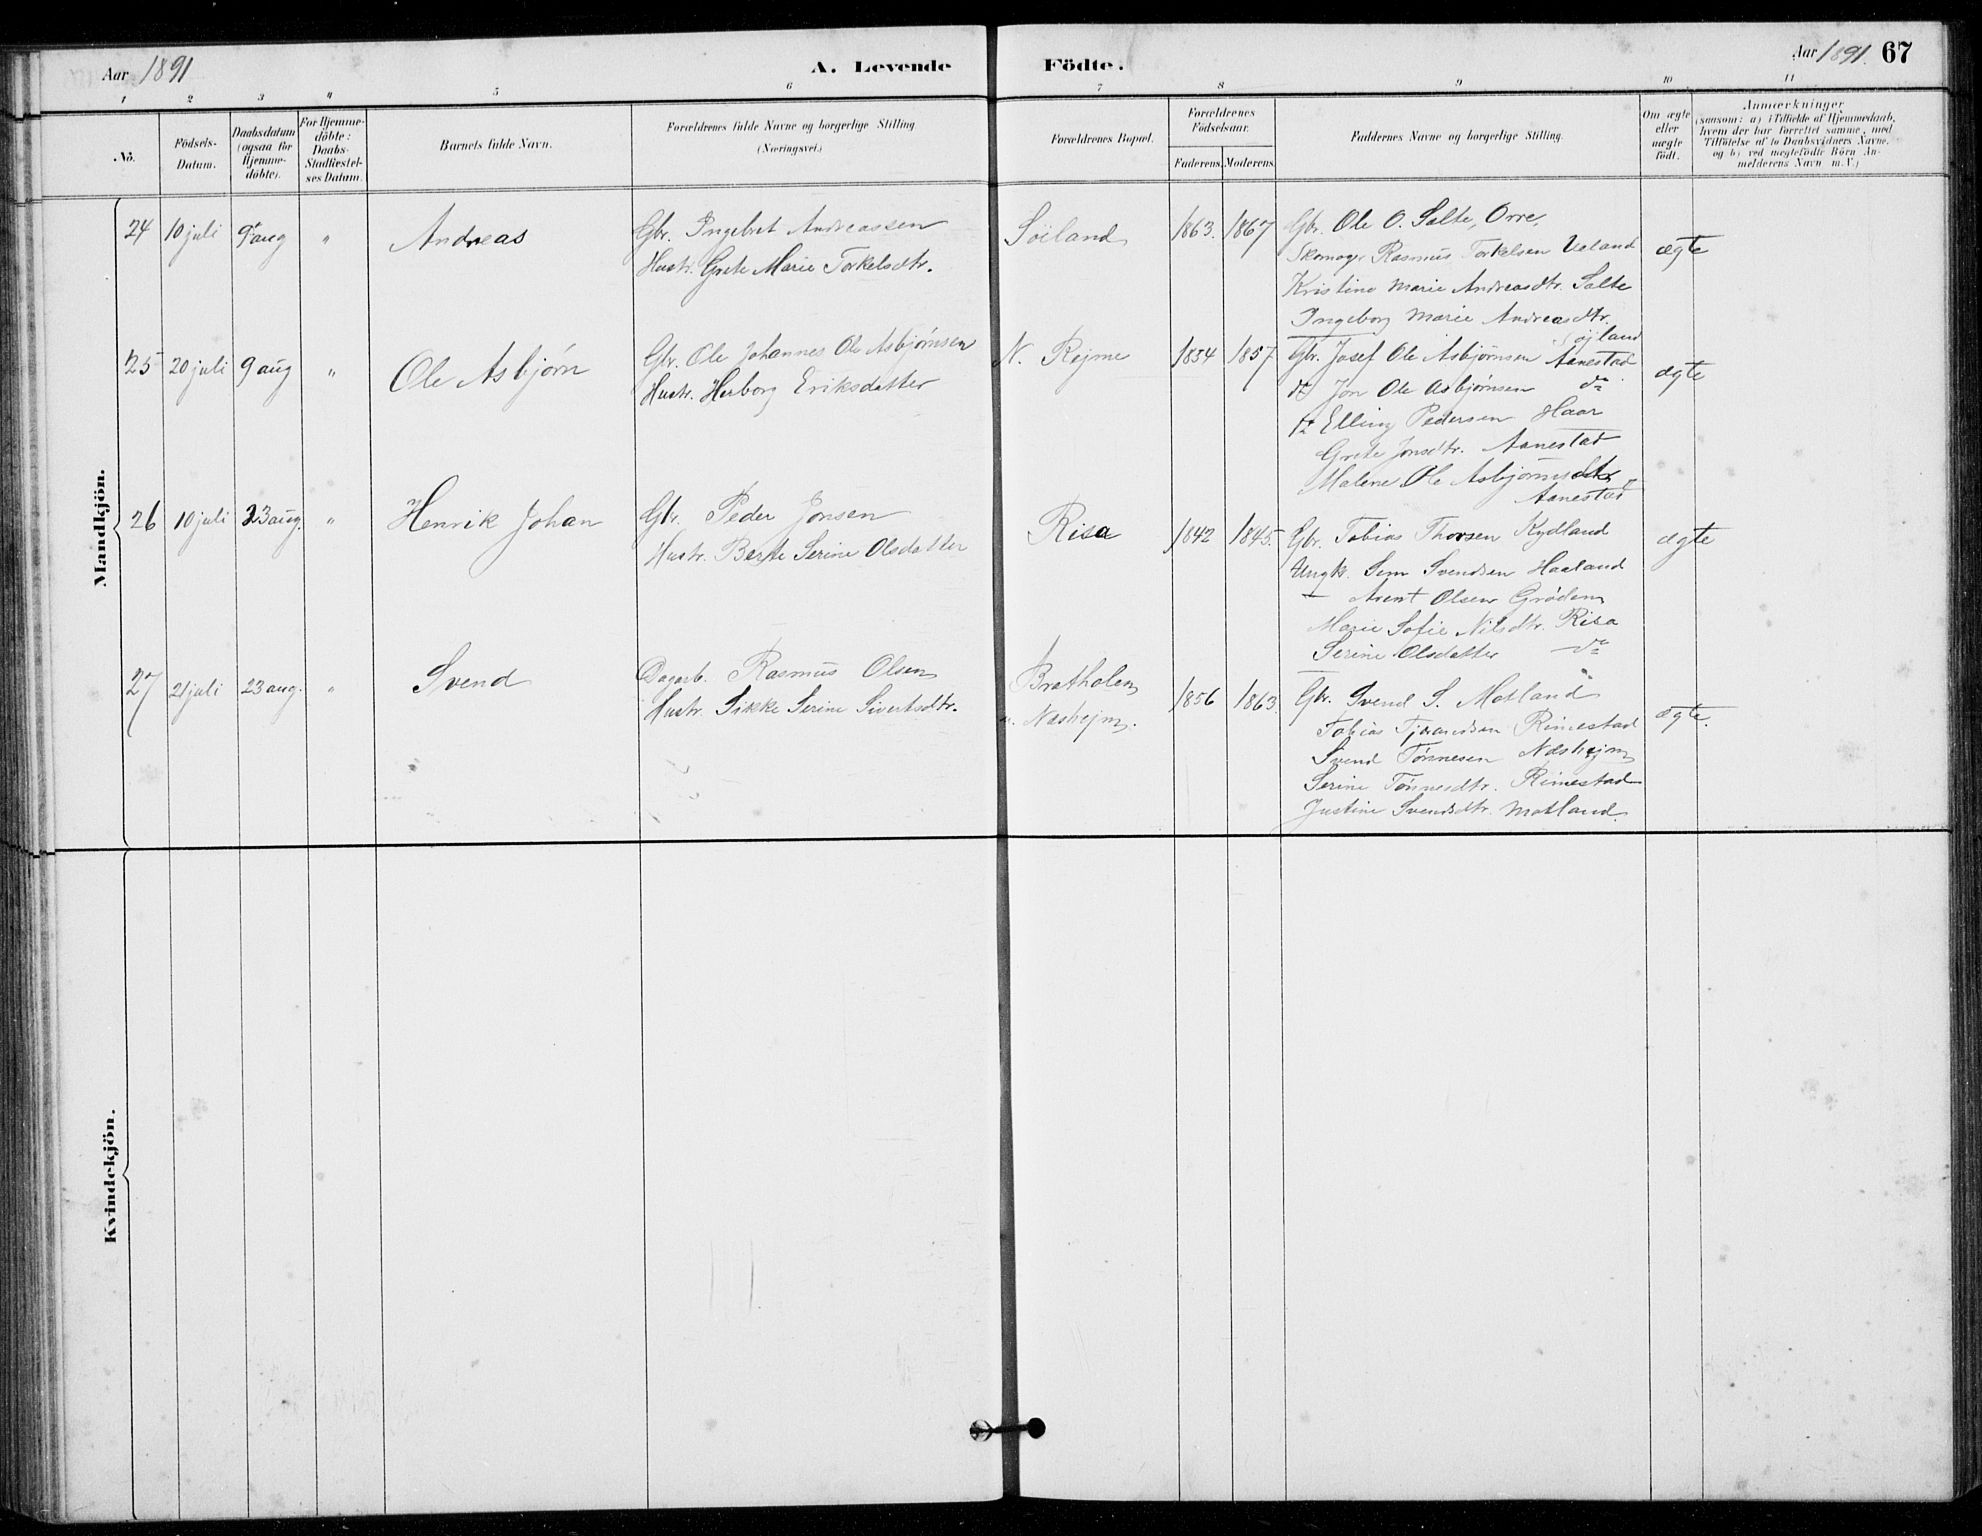 Aar 1891
A. Levende Födte.
Aar 1891. 67
1 2 3 4 5 6 7 8 9 10 11
No.
Födsels-
Datum.
Daabsdatum
(ogsaa for
Hjemme-
döbte).
For Hjemme-
döbte:
Daabs-
Stadfæstel-
ses Datum.
Barnets fulde Navn.
Forældrenes fulde Navne og borgerlige Stilling
(Næringsvei.)
Forældrenes Bopæl.
Forældrenes
Födselsaar.
Faderens.
Moderens.
Faddernes Navne og borgerlige Stilling.
Om ægte
eller
uægte
födt.
Anmærkninger
(saasom: a) i Tilfælde af Hjemmedaab,
hvem der har forrettet samme, med
Tilföielse af to Daabsvidners Navne,
og b) ved uægtefödte Börn An-
melderens Navn m. V.)
Mandkjön.
24 10 juli 9 aug " Andreas
Gbr. Ingebret Andreassen
Hustr. Grete Marie Torkelsdtr.
Söiland 1863. 1867
Gbr. Ole O. Salte, Orre,
Skomagr Rasmus Torkelsen Ueland
Kristine Marie Andreasdtr. Salte
Ingeborg Marie Andreasdtr.
Söjland
ægte
25 20 juli 9 aug " Ole Asbjørn
Gbr. Ole Johannes Ole Asbjørnsen
Hustr. Herborg Eriksdatter
N. Rejme 1854 1857
Gbr. Josef Ole Asbjørnsen Aanestad
do Jon Ole Asbjørnsen do
do Elling Pedersen Haar
Grete Jonsdtr. Aanestad
Malene Ole Asbjørnsdtr
Aanestad
ægte
26 10 juli 23 aug. " Henrik Johan
Gbr. Peder Jonsen
Hustr. Berte Serine Olsdatter
Risa 1842 1845.
Gbr. Tobias Thorsen Kydland
Ungk. Sem Svendsen Haaland
— Arent Olsen Grödem
Marie Sofie Nilsdtr. Risa
Serine Olsdatter do
ægte
27 21 juli 23 aug. " Svend
Dagarb. Rasmus Olsen
Hustr. Sikke Serine Sivertsdtr.
Bratholen
u. Næshejm. 1856 1863.
Gbr. Svend S. Motland
Tobias Tjerandsen Rimestad
Svend Tönnesen Næshejm
Serine Tönnesdtr. Rimestad
Justine Svendsdtr. Motland.
ægte.
Kvindekjön.